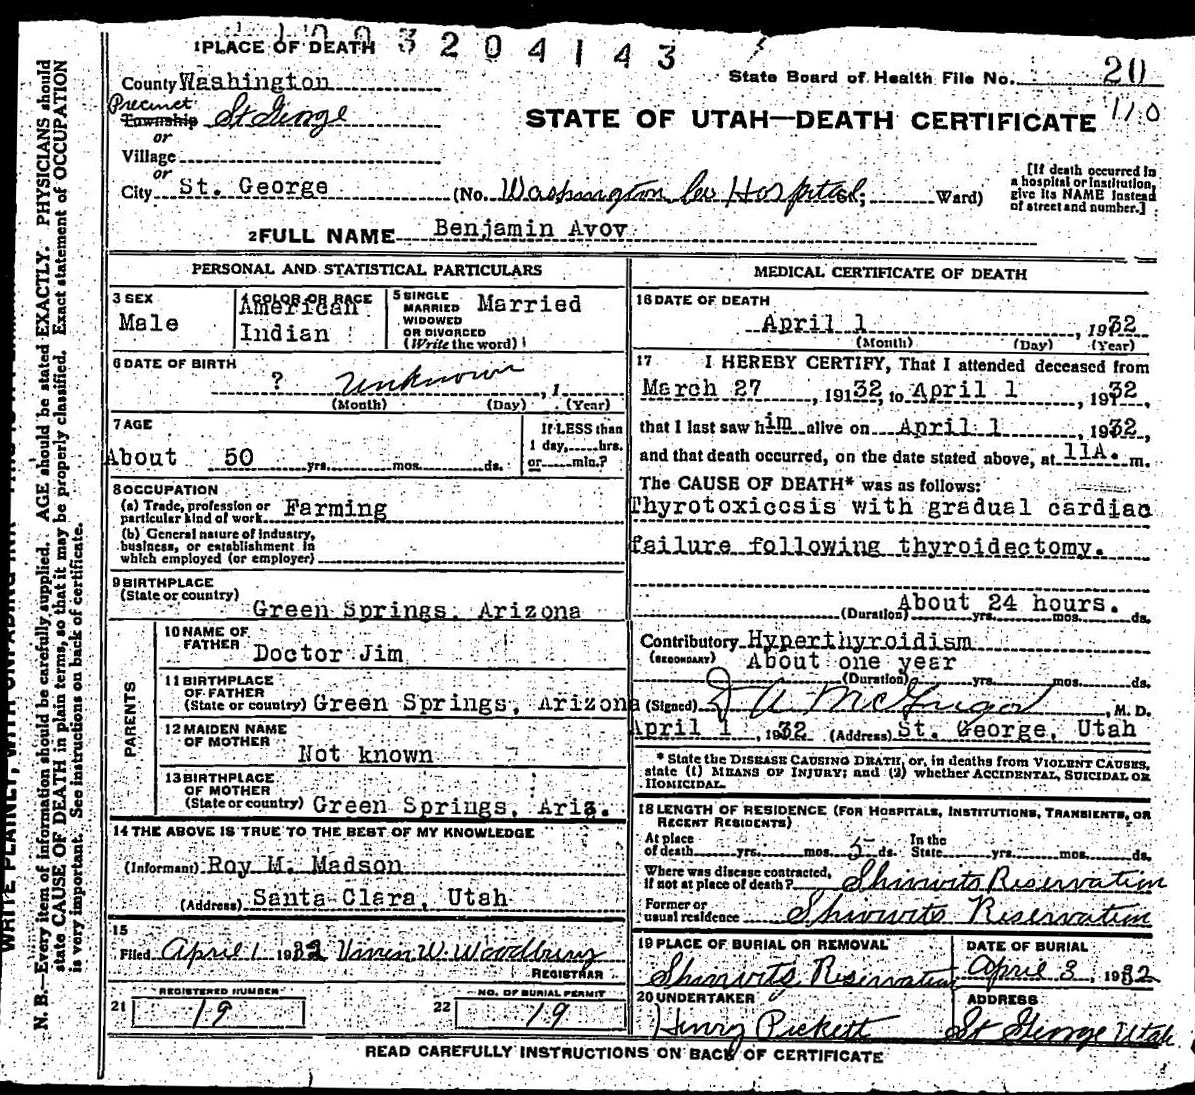 3204143
1 PLACE OF DEATH
State Board of Health File No. 20
County Washington
110
Precinct
Township St George
STATE OF UTAH—DEATH CERTIFICATE
or
Village
or
City St. George (No. Washington Co Hospital; Ward)
[If death occurred in
a hospital or institution,
give its NAME instead
of street and number.]
2 FULL NAME Benjamin Avov
PERSONAL AND STATISTICAL PARTICULARS
3 SEX
Male
4 COLOR OR RACE
American
Indian
5 SINGLE
MARRIED
WIDOWED
OR DIVORCED
(Write the word)
Married
6 DATE OF BIRTH
? unknown , 1
(Month) (Day) (Year)
7 AGE
About 50 yrs. mos. ds.
If LESS than
1 day, hrs.
or min.?
8 OCCUPATION
(a) Trade, profession or
particular kind of work Farming
(b) General nature of industry,
business, or establishment in
which employed (or employer)
9 BIRTHPLACE
(State or country)
Green Springs, Arizona
PARENTS
10 NAME OF
FATHER
Doctor Jim
11 BIRTHPLACE
OF FATHER
(State or country) Green Springs, Arizona
12 MAIDEN NAME
OF MOTHER
Not known
13 BIRTHPLACE
OF MOTHER
(State or country) Green Springs, Ariz.
14 THE ABOVE IS TRUE TO THE BEST OF MY KNOWLEDGE
(Informant) Roy M. Madson
(Address) Santa Clara, Utah
15
Filed April 1 1932 W. Woodbury
REGISTRAR
REGISTERED NUMBER
21 19
NO. OF BURIAL PERMIT
22 19
MEDICAL CERTIFICATE OF DEATH
16 DATE OF DEATH
April 1 , 1932
(Month) (Day) (Year)
17 I HEREBY CERTIFY, That I attended deceased from
March 27 , 19132, to April 1 , 1932,
that I last saw him alive on April 1 , 1932,
and that death occurred, on the date stated above, at 11A. m.
The CAUSE OF DEATH* was as follows:
Thyrotoxicosis with gradual cardiac
failure following thyroidectomy.
About 24 hours.
(Duration) yrs. mos. ds.
Contributory Hyperthyroidism
(SECONDARY) About one year
(Duration) yrs. mos. ds.
(Signed) D A McGregor , M. D.
April 1 , 1932 (Address) St. George, Utah
* State the DISEASE CAUSING DEATH, or, in deaths from VIOLENT CAUSES,
state (1) MEANS OF INJURY; and (2) whether ACCIDENTAL, SUICIDAL OR
HOMICIDAL.
18 LENGTH OF RESIDENCE (FOR HOSPITALS, INSTITUTIONS, TRANSIENTS, OR
RECENT RESIDENTS)
At place
of death yrs. mos. 5 ds.
In the
State yrs. mos. ds.
Where was disease contracted,
if not at place of death? Shivwits Reservation
Former or
usual residence Shivwits Reservation
19 PLACE OF BURIAL OR REMOVAL
Shivwits Reservation
DATE OF BURIAL
April 3 , 1932
20 UNDERTAKER
Henry Pickett
ADDRESS
St George Utah
READ CAREFULLY INSTRUCTIONS ON BACK OF CERTIFICATE
N. B.—Every item of information should be carefully supplied. AGE should be stated EXACTLY. PHYSICIANS should
state CAUSE OF DEATH in plain terms, so that it may be properly classified. Exact statement of OCCUPATION
is very important. See instructions on back of certificate.
WRITE PLAINLY, WITH UNFADING INK